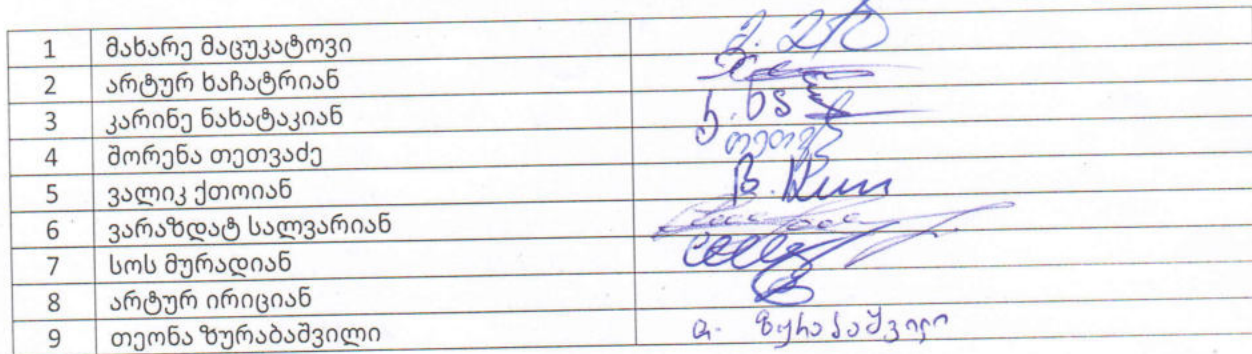 1 მახარე მაცუკატოვი
2 არტურ ხაჩატრიან
3 კარინე ნახატაკიან
4 შორენა თეთვაძე
5 ვალიკ ქთოიან
6 ვარაზდატ სალვარიან
7 სოს მურადიან
8 არტურ ირიციან
9 თეონა ზურაბაშვილი თ. ზურაბაშვილი